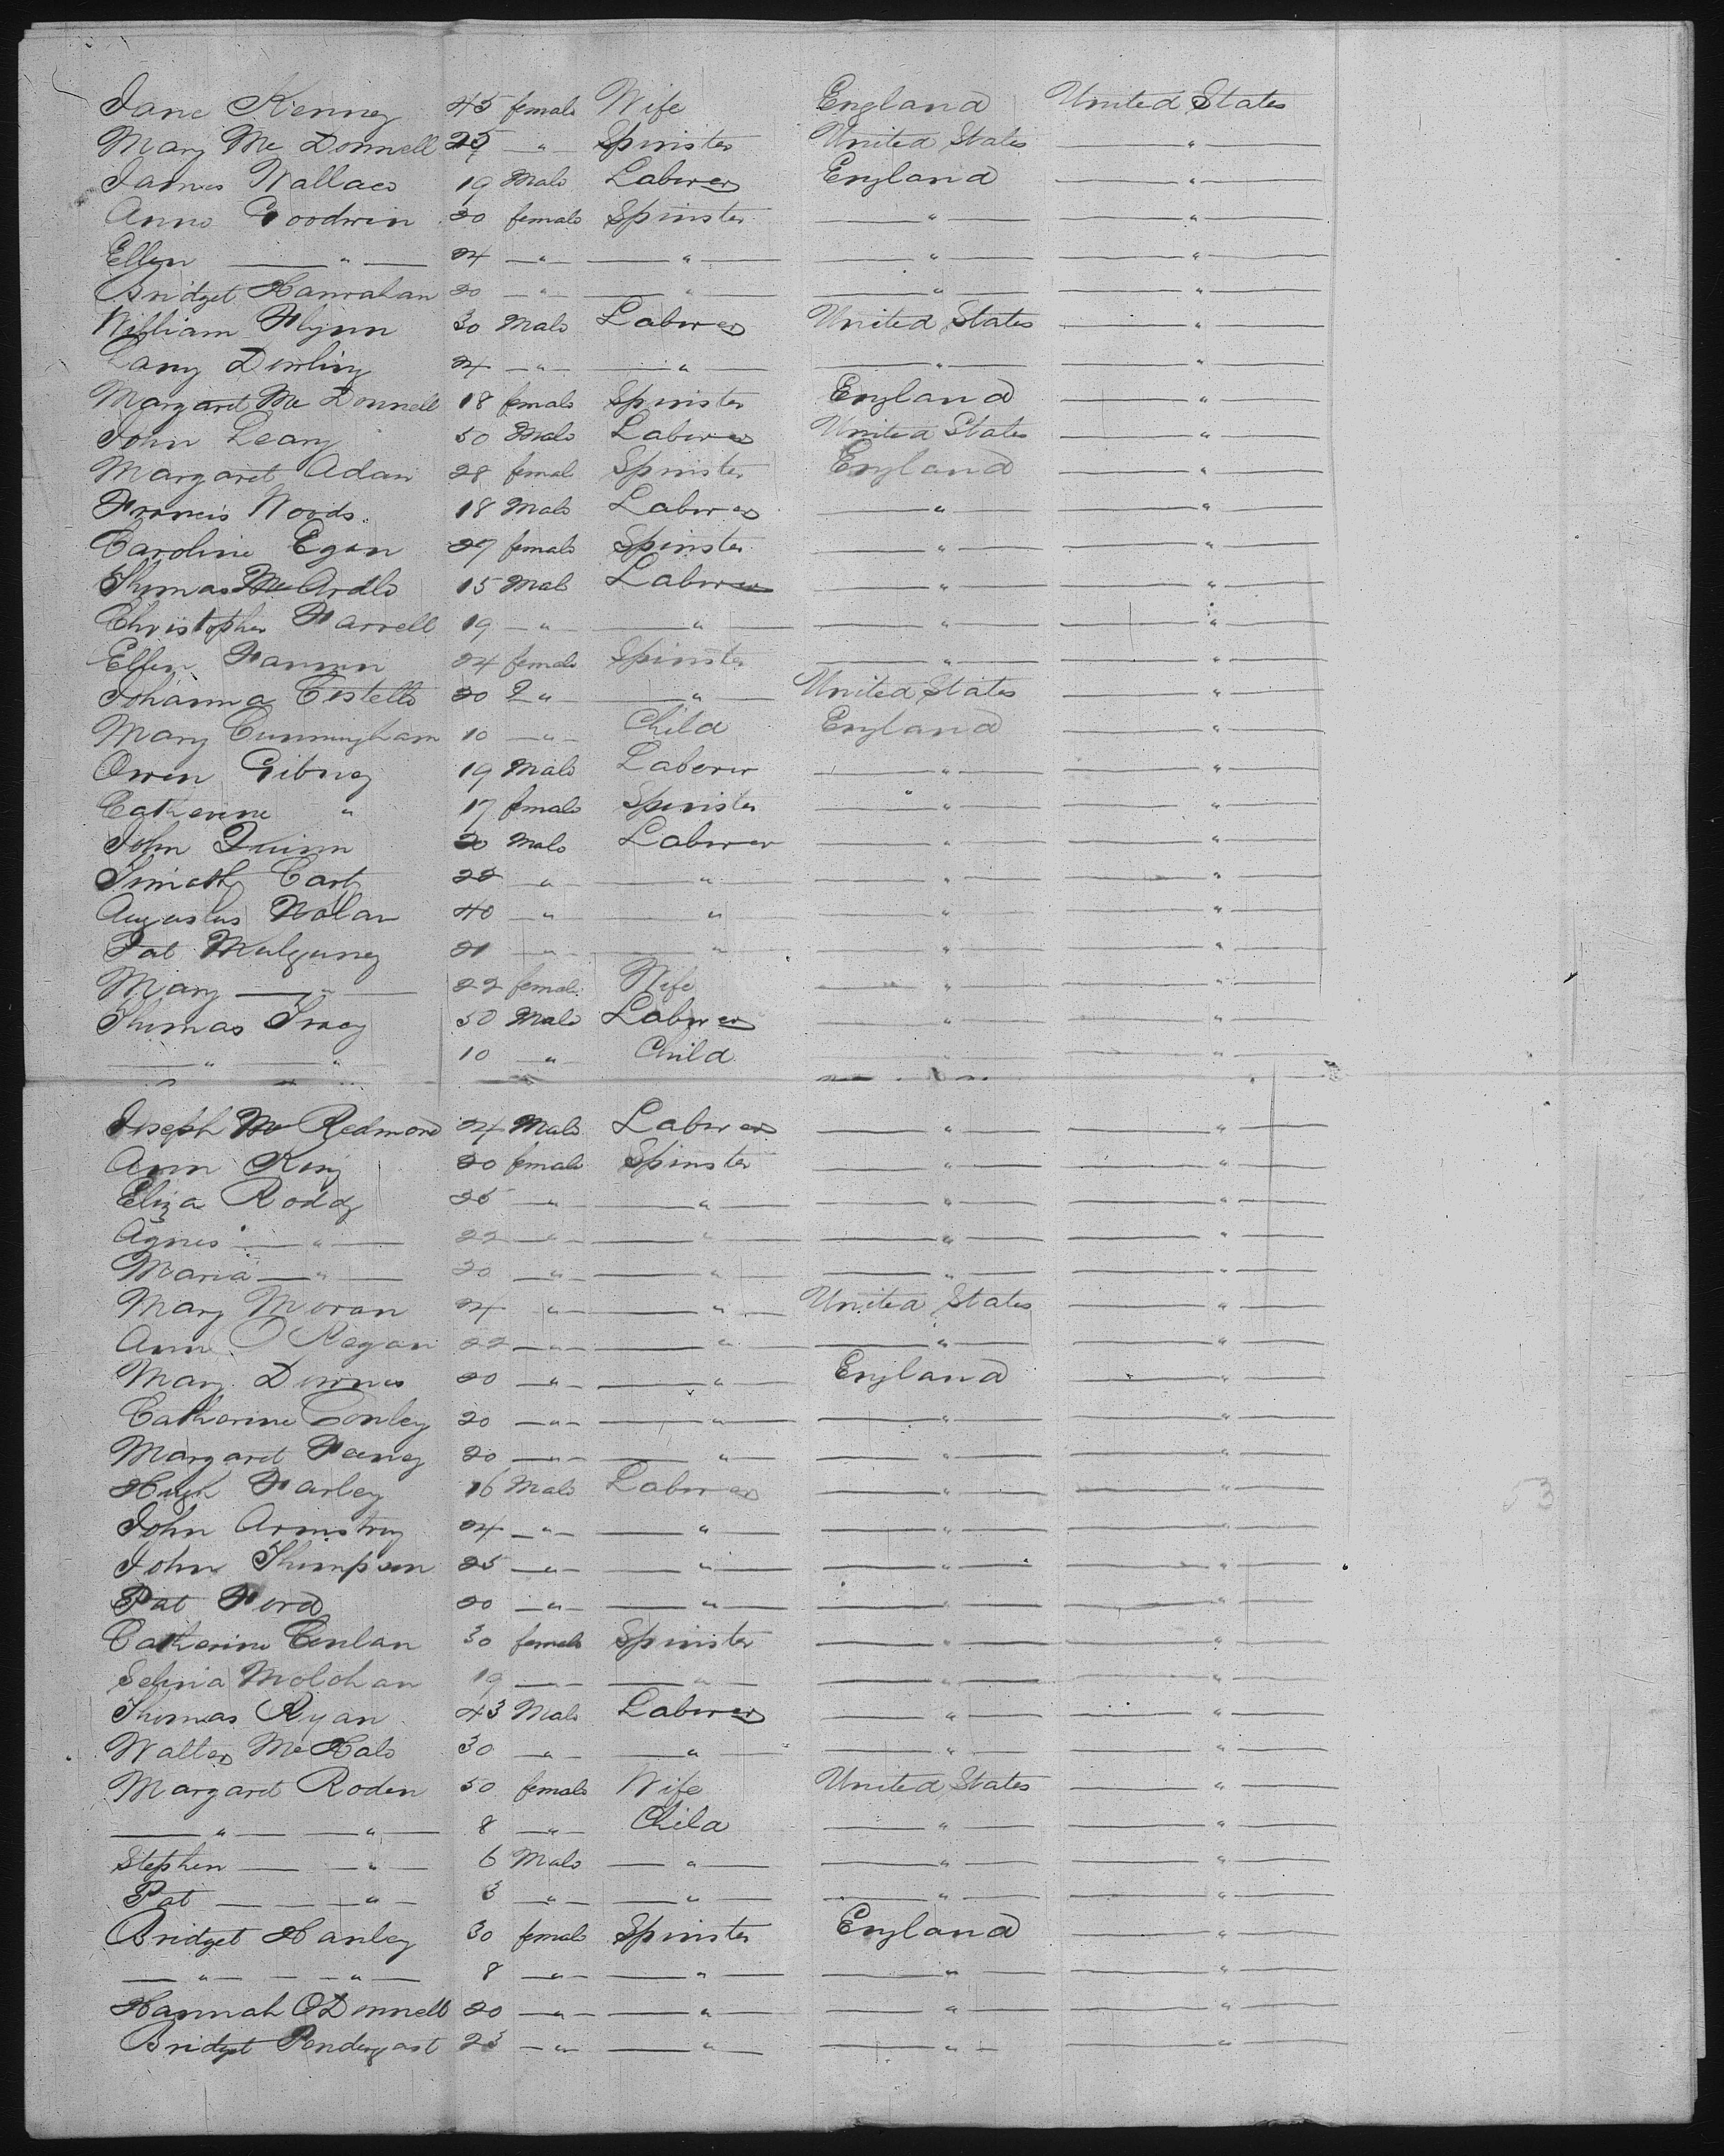 Jane Kenney 45 female Wife England United States
Mary Mc Donnell 25 — " — Spinster United States — " —
James Wallace 19 Male Laborer England — " —
Anne Goodwin 20 female Spinster — " — — " —
Ellen — " — 24 — " — — " — — " — — " —
Bridget Hanrahan 20 — " — — " — — " — — " —
William Flynn 30 Male Laborer United States — " —
Dowling 24 — " — — " — — " — — " —
Margaret Mc Donnell 18 female Spinster England — " —
John Leary 50 Male Laborer United States — " —
Margaret Adair 28 female Spinster England — " —
Francis Woods 18 Male Laborer — " — — " —
Caroline Egan 27 female Spinster — " — — " —
Thomas Mc Ardle 15 Male Laborer — " — — " —
Christopher Farrell 19 — " — — " — — " — — " —
Ellen Fannin 24 female Spinster — " — — " —
Johanna Costello 20 " — — " — United States — " —
Mary Cunningham 10 — " — Child England — " —
Owen Gibney 19 Male Laborer — " — — " —
Catherine " 17 female Spinster — " — — " —
John Quinn 20 Male Laborer — " — — " —
Timothy Carty 22 — " — — " — — " — — " —
Augustus Nolan 40 — " — — " — — " — — " —
Pat 21 — " — — " — — " — — " —
Mary — " — 22 female Wife — " — — " —
Thomas Tracy 50 Male Laborer — " — — " —
— " — — " — 10 — " — Child — " — — " —
Joseph Mc Redmond 24 Male Laborer — " — — " —
Ann King 20 female Spinster — " — — " —
Eliza Roddy 25 — " — — " — — " — — " —
Agnes — " — 22 — " — — " — — " — — " —
Maria — " — 20 — " — — " — — " — — " —
Mary Moran 24 — " — — " — United States — " —
Ann O Regan 22 — " — — " — — " — — " —
Mary Downes 20 — " — — " — England — " —
Catherine Conley 20 — " — — " — — " — — " —
Margaret Feeney 20 — " — — " — — " — — " —
Hugh Farley 16 Male Laborer — " — — " —
John Armstrong 24 — " — — " — — " — — " —
John Thompson 25 — " — — " — — " — — " —
Pat Ford 20 — " — — " — — " — — " —
Catherine Conlan 30 female Spinster — " — — " —
Selina Molohan 19 — " — — " — — " — — " —
Thomas Ryan 43 Male Laborer — " — — " —
Walter Mc Hale 30 — " — — " — — " — — " —
Margaret Roden 50 female Wife United States — " —
— " — — " — 8 — " — Child — " — — " —
Stephen — " — 6 Male — " — — " — — " —
Pat — " — 3 — " — — " — — " — — " —
Bridget Hanley 30 female Spinster England — " —
— " — — " — 8 — " — — " — — " — — " —
Hannah O'Donnell 20 — " — — " — — " — — " —
Bridget Pendergast 23 — " — — " — — " — — " —